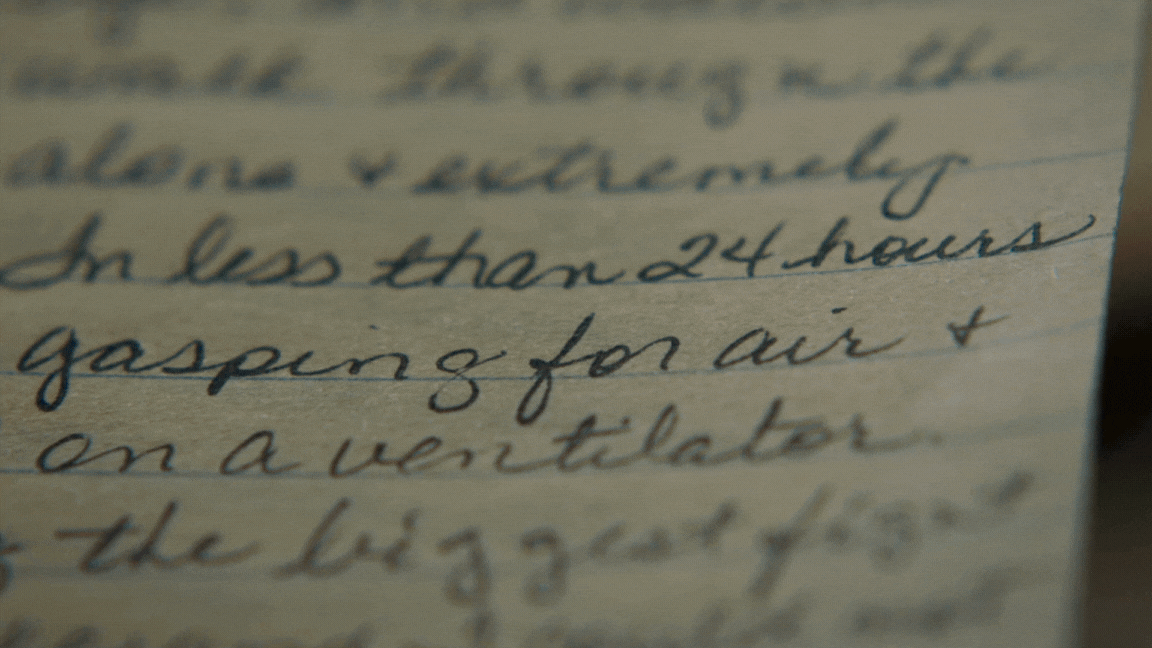 through the
alone & extremely
In less than 24 hours
gasping for air &
on a ventilator.
the biggest fight